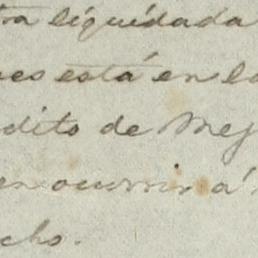 tra liquidada
ues está en la
dito de Mej
en ocurrir á
cho.